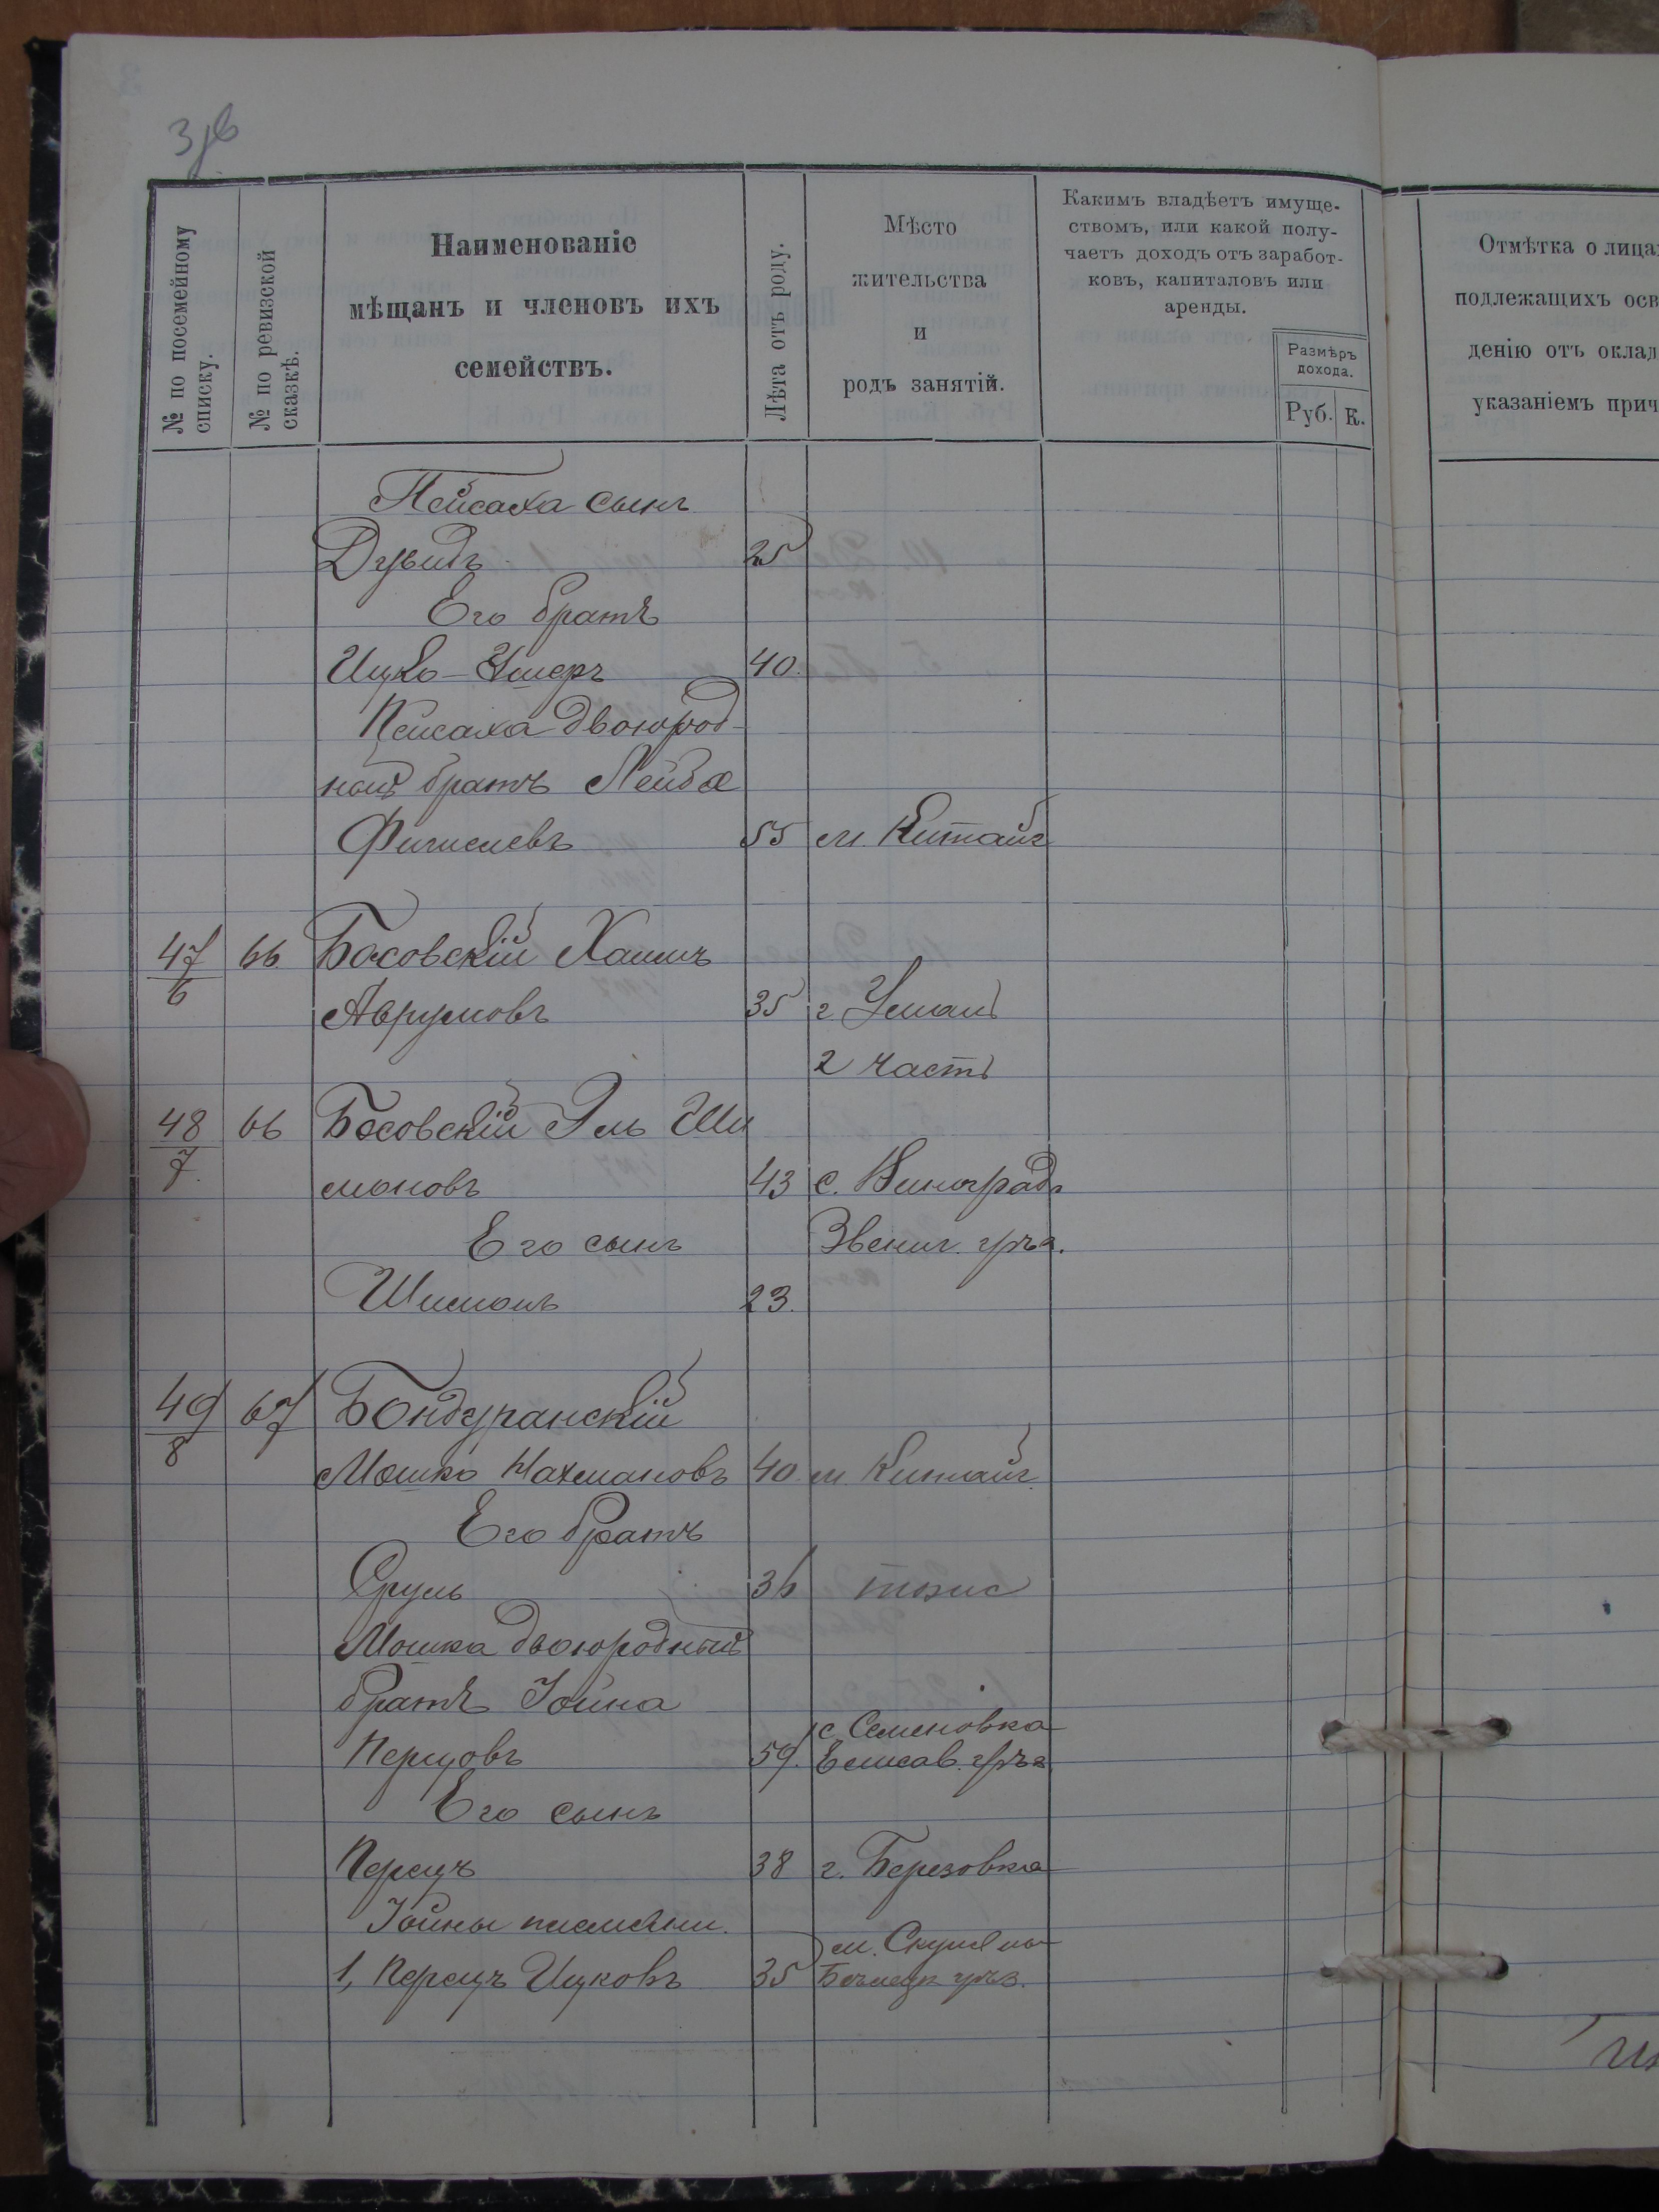 3 об
№ по посемейному
списку.
№ по ревизской
сказкѣ.
Наименованіе
мѣщанъ и членовъ ихъ
семействъ.
Лѣта отъ роду.
Мѣсто
жительства
и
родъ занятій.
Какимъ владѣетъ имуще-
ствомъ, или какой полу-
чаетъ доходъ отъ заработ-
ковъ, капиталовъ или
аренды.
Размѣръ
дохода.
Руб. К.
Отмѣтка о лица
подлежащихъ осв
денію отъ оклад
указаніемъ прич
Пейсаха сынъ
Дувидъ 25
Его братъ
Ицко-Ушеръ 40.
Пейсаха двоюрод-
ной братъ Лейба
55 м. Китайг
47/6 66 Босовскій Хаимъ
Аврумовъ 35 г Умань
2 часть
48/7. 66 Босовскій Эль Ши
моновъ 43 с. Виноградъ
Его сынъ Звениг. уѣз.
Шимонъ 23.
49/8 67 Бондуранскій
Мошко Нахмановъ 40. м. Китайг.
Его братъ
Сруль 36 тоже
Мошка двоюродный
братъ Іойна
с. Семеновка
Перцовъ 59. Елисав. уѣз.
Его сынъ
Перецъ 38 г. Березовка
Іойны племян.
м. Скуляны
1, Перецъ Ицковъ 35 уѣз.